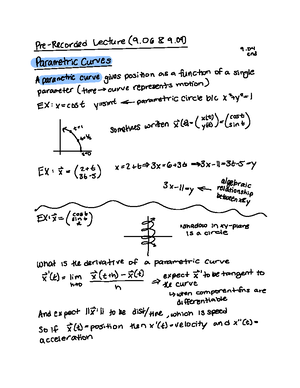 Pre-Recorded Lecture (9.06 & 9.09)
9.04 end
Parametric Curves
A parametric curve gives position as a function of a single
parameter (time → curve represents motion)
EX: x=cost y=sint ← parametric circle b/c x²+y²=1
t=0
sometimes written x⃗(t)=(x(t) y(t))=(cost sint)
EX: x⃗ = (2+t 3t-5) x=2+t⇒3x=6+3t ⇒3x-11=3t-5=y
3x-11=y ← algebraic
relationship
between x&y
EX: x⃗= (cost sint t)
shadow in xy-plane
is a circle
What is the derivative of a parametric curve
x⃗'(t)= lim h→0 x⃗(t+h)-x⃗(t) / h ⇒ expect x⃗' to be tangent to
the curve
↳ when component fns are
differentiable
And expect ||x⃗'|| to be dist/time, which is speed
So if x⃗(t)=position then x'(t)=velocity and x"(t)=
acceleration